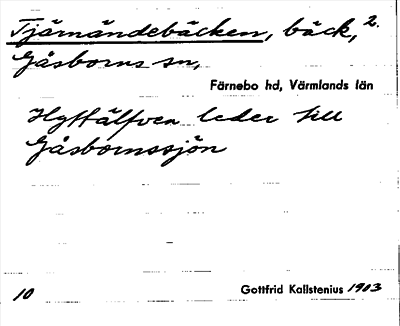 Tjärnändebäcken, bäck, 2.
Gåsborns sn,
Färnebo hd, Värmlands län
Hyttälfven leder till
Gåsbornssjön
10
Gottfrid Kallstenius 1903